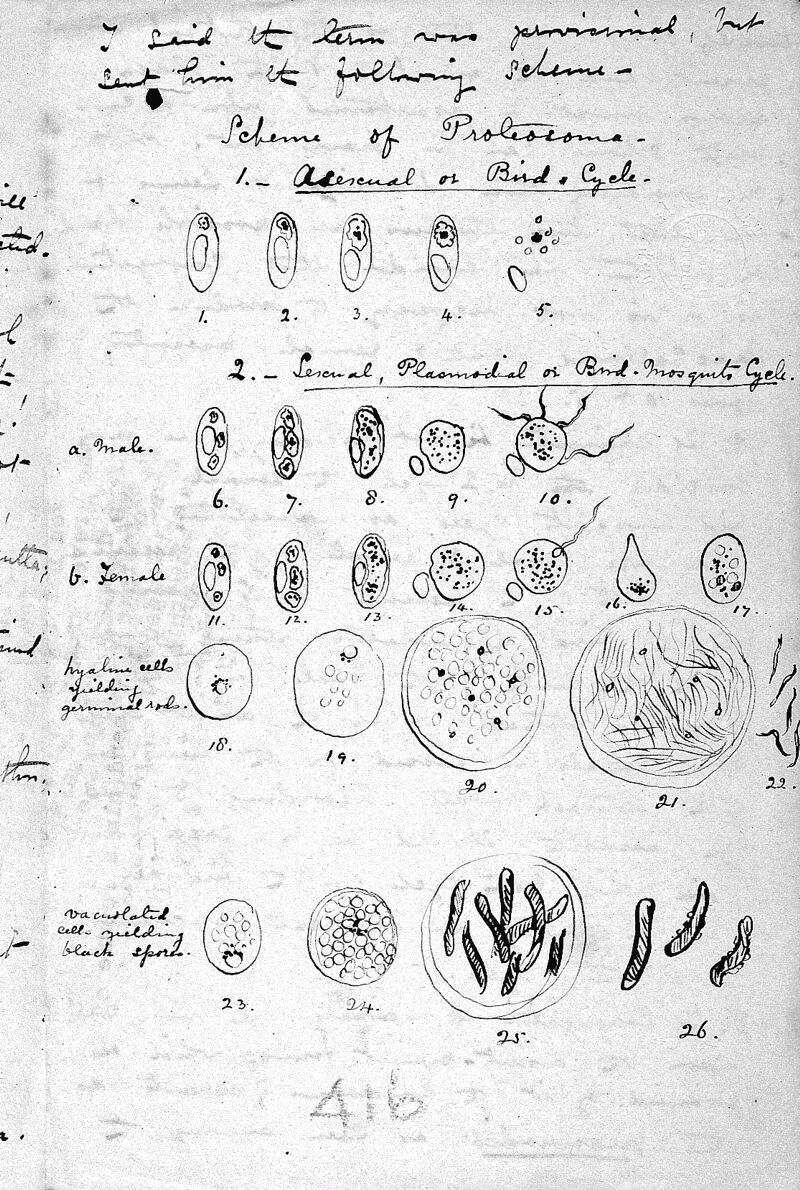 I said the term was provisional, but
sent him the following scheme —
Scheme of Proteosoma —
1. — Asexual or Bird. Cycle. —
1. 2. 3. 4. 5.
2. — Sexual, Plasmodial or Bird-Mosquito Cycle.
a. Male.
6. 7. 8. 9. 10.
b. Female
11. 12. 13. 14. 15. 16. 17.
hyaline cells
yielding
germinal rods.
18. 19. 20. 21. 22.
vacuolated
cells yielding
black spores.
23. 24. 25. 26.
416